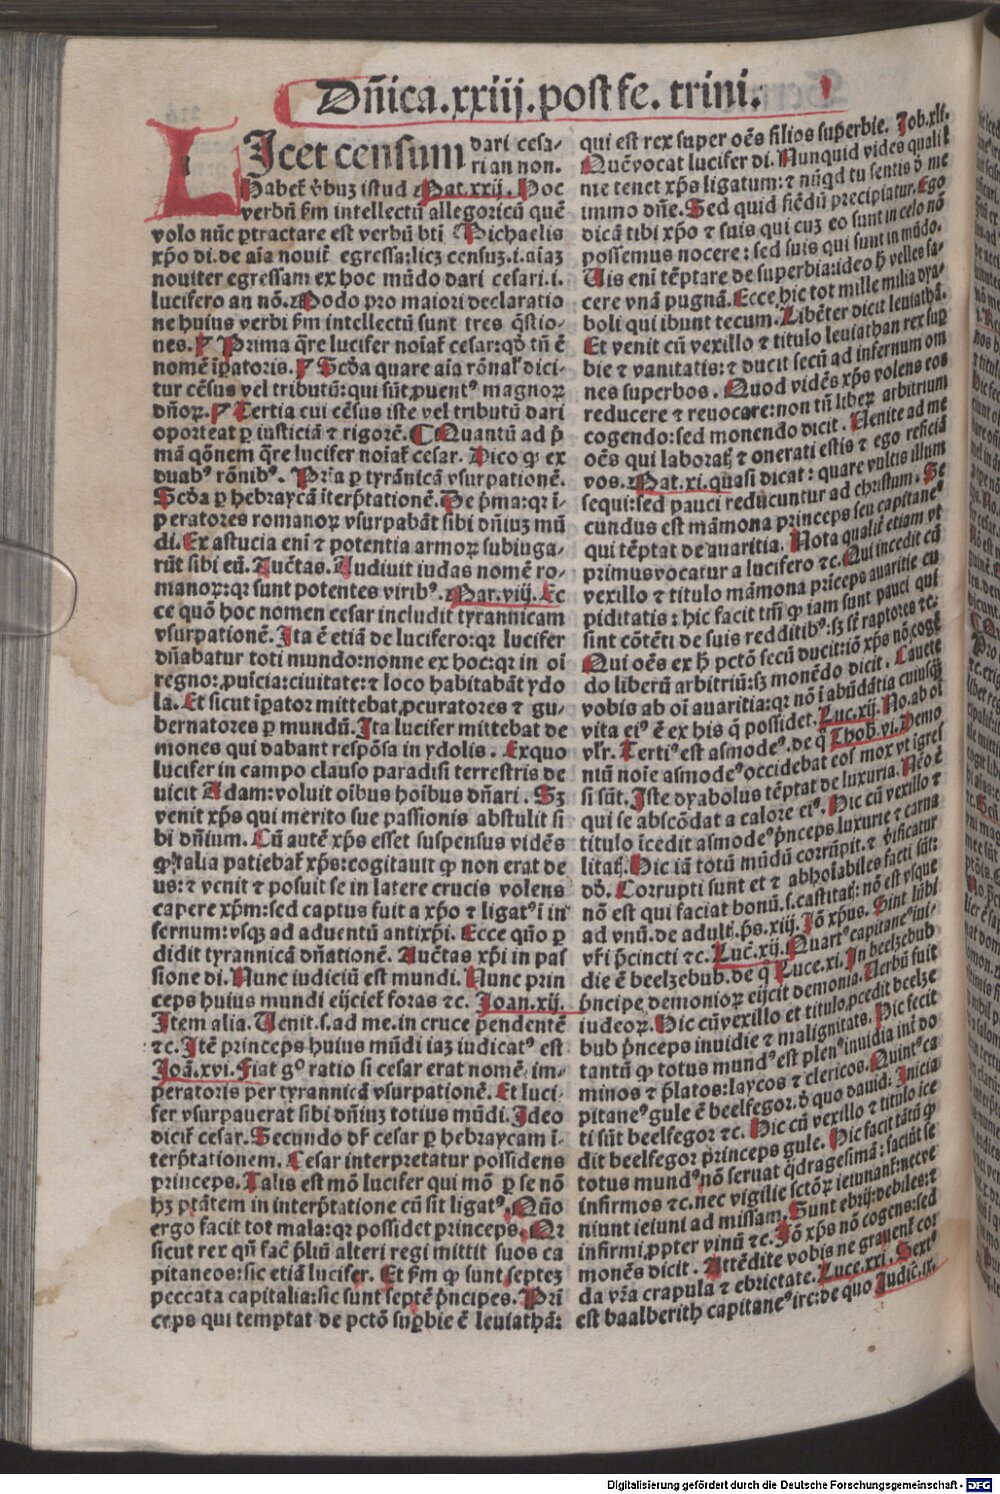 Dñica.xxiij.post fe. trini.
LIcet censum dari cesa-
ri an non.
Habet᷑ v̾buʒ istud Mat.xxij. Hoc
verbũ ẜm intellectũ allegoricũ quẽ
volo nũc ꝑtractare est verbũ bti Michaelis
xp̃o di. de aĩa nouit᷑ egressa: licʒ censuʒ.i.aĩaʒ
nouiter egressam ex hoc mũdo dari cesari.i.
lucifero an nõ. Modo pro maiori declaratio
ne huius verbi ẜm intellectũ sunt tres q̃stio-
nes. ¶ Prima q̃re lucifer noĩat᷑ cesar: qđ tñ ẽ
nomẽ ĩpatoris. ¶ Scđa quare aĩa rõnal᷑ dici-
tur cẽsus vel tributũ: qui sũt ꝓuentꝰ magnoꝝ
dñoꝝ. ¶ Tertia cui cẽsus iste vel tributũ dari
oporteat ꝑ iusticiã ⁊ rigorẽ. ¶ Quantũ ad p̃
mã q̃onem q̃re lucifer noĩat᷑ cesar. Dico ꝙ ex
duabꝰ rõnibꝰ. Pr̃a ꝑ tyrãnicã vsurpationẽ.
Scđa ꝑ hebraycã ĩterp̃tationẽ. De p̃ma: qꝛ ĩ-
peratores romanoꝝ vsurpabãt sibi dñiuʒ mũ
di. Ex astucia eni ⁊ potentia armoꝝ subiuga-
rũt sibi eũ. Auc̃tas. Audiuit iudas nomẽ ro-
manoꝝ: qꝛ sunt potentes viribꝰ. Mar.viij. Ec
ce quõ hoc nomen cesar includit tyrannicam
vsurpationẽ. Ita ẽ etiã de lucifero: qꝛ lucifer
dñabatur toti mundo: nonne ex hoc: qꝛ in oĩ
regno: ꝓuĩcia: ciuitate: ⁊ loco habitabãt ydo
la. Et sicut ĩpator mittebat ꝓcuratores ⁊ gu-
bernatores ꝑ mundũ. Ita lucifer mittebat de
mones qui dabant respõsa in ydolis. Exquo
lucifer in campo clauso paradisi terrestris de
uicit Adam: voluit oĩbus hoĩbus dñari. Sʒ
venit xp̃s qui merito sue passionis abstulit si
bi dñium. Cũ autẽ xp̃s esset suspensus vidẽs
ꝙ talia patiebat᷑ xp̃s: cogitauit ꝙ non erat de
us: ⁊ venit ⁊ posuit se in latere crucis volens
capere xp̃m: sed captus fuit a xp̃o ⁊ ligatꝰ ĩ in
fernum: vsqʒ ad aduentũ antixp̃i. Ecce quo ꝑ
didit tyrannicã dñationẽ. Auc̃tas xp̃i in pas
sione di. Nunc iudiciũ est mundi. Nunc prin
ceps huius mundi eijciet᷑ foras ⁊c. Ioan.xij.
Item alia. Uenit.s.ad me.in cruce pendentẽ
⁊c. Itẽ princeps huius mũdi iaʒ iudicatꝰ est
Joã.xvi. Fiat gº ratio si cesar erat nomẽ im-
peratoris per tyrannicã vsurpationẽ. Et luci-
fer vsurpauerat sibi dñiuʒ totius mũdi. Ideo
dicit᷑ cesar. Secundo đr cesar ꝑ hebraycam ĩ-
terp̃tationem. Cesar interpretatur possidens
princeps. Talis est mõ lucifer qui mõ ꝑ se nõ
hʒ ptãtem in interp̃tatione cũ sit ligatꝰ. Quõ
ergo facit tot mala: qꝛ possidet princeps. Qꝛ
sicut rex qñ fac̃ p̃liũ alteri regi mittit suos ca
pitaneos: sic etiã lucifer. Et ẜm ꝙ sunt septeʒ
peccata capitalia: sic sunt septẽ p̃ncipes. Pri
ceps qui temptat de pctõ suꝑbie ẽ leuiathã:
qui est rex super oẽs filios suꝑbie. Job.xli.
Quẽ vocat lucifer di. Nunquid vides qualit᷑
me tenet xp̃s ligatum: ⁊ nũqd tu sentis ꝙ me
immo dñe. Sed quid fiẽdũ precipiatur. Ego
dicã tibi xp̃o ⁊ suis qui cuʒ eo sunt in celo nõ
possemus nocere: sed suis qui sunt in mũdo.
Uis eni tẽptare de superbia: ideo ꝙ velles fa-
cere vnã pugnã. Ecce hic tot mille milia dya-
boli qui ibunt tecum. Libẽter dicit leuiathã.
Et venit cũ vexillo ⁊ titulo leuiathan rex suꝑ
bie ⁊ vanitatis: ⁊ ducit secũ ad infernum om
nes superbos. Quod vidẽs xp̃s volens eos
reducere ⁊ reuocare: non tñ liberꝝ arbitrium
cogendo: sed monendo dicit. Uenite ad me
oẽs qui laborat᷑ ⁊ onerati estis ⁊ ego reficiã
vos. Mat.xi. quasi dicat: quare vultis illum
sequi: sed pauci reducuntur ad christum. Se
cundus est mãmona princeps seu capitaneꝰ
qui tẽptat de auaritia. Nota qualit᷑ etiam vt
primus vocatur a lucifero ⁊c. Qui incedit cũ
vexillo ⁊ titulo mãmona p̃ceps auaritie cu
piditatis: hic facit tm̃ ꝙ iam sunt pauci qui
sint cõtẽti de suis redditibꝰ: sʒ sẽ raptores ⁊c.
Qui oẽs ex ħ pctõ secũ ducit: iõ xp̃s nõ cogẽ
do liberũ arbitriũ: sʒ monẽdo dicit. Cauete
vobis ab oĩ auaritia: qꝛ nõ ĩ abũdãtia cuiusqʒ
vita eiꝰ ẽ ex his q̃ possidet. Luc.xij. No. ab oĩ
vl᷑r. Tertiꝰ est asmodeꝰ. de q̃ Thob.vi. Demo
niũ noĩe asmodeꝰ occidebat eos mox vt ĩgres
si sũt. Iste dyabolus tẽptat de luxuria. Nõ ẽ
qui se abscõdat a calore eiꝰ. Hic cũ vexillo ⁊
titulo ĩcedit asmodeꝰ p̃nceps luxurie ⁊ carna
litat᷑. Hic iã totũ mũdũ corrũpit. ⁊ ꝟificatur
đđ. Corrupti sunt et ⁊ abhoĩabiles facti sũt:
nõ est qui faciat bonũ.s.castitat᷑: nõ est vsque
ad vnũ. de adult᷑. p̃s.xiij. Iõ xp̃us. Sint lũbi
vr̃i p̃cincti ⁊c. Luc̃.xij. Quartꝰ capitaneꝰ ini-
die ẽ beelzebub. de q̃ Luce.xi. In beelzebub
p̃ncipe demonioꝝ eijcit demonia. Uerbũ fuit
iudeoꝝ. Hic cũ vexillo et titulo ꝓcedit beelze
bub p̃nceps inuidie ⁊ malignitatis. Hic fecit
tantũ ꝙ totus mundꝰ est plenꝰ inuidia int᷑ do
minos ⁊ p̃latos: laycos ⁊ clericos. Quintꝰ ca
pitaneꝰ gule ẽ beelfegor. đ quo dauid: Inicia
ti sũt beelfegor ⁊c. Hic cũ vexillo ⁊ titulo ice
dit beelfegor princeps gule. Hic facit tãtũ ꝙ
totus mundꝰ nõ seruat q̃dragesimã: faciũt se
infirmos ⁊c. nec vigilie sctõꝝ ieiunant᷑: necve
niunt ieiuni ad missam. Sunt ebrij: debiles: ⁊
infirmi ꝓpter vinũ ⁊c. Iõ xp̃s nõ cogens: sed
monẽs dicit. Attẽdite vobis ne grauent᷑ cor
da vr̃a crapula ⁊ ebrietate. Luce.xxi. Sextꝰ
est baalberith capitaneꝰ ire: de quo Judic̃.ix.
Digitalisierung gefördert durch die Deutsche Forschungsgemeinschaft - DFG